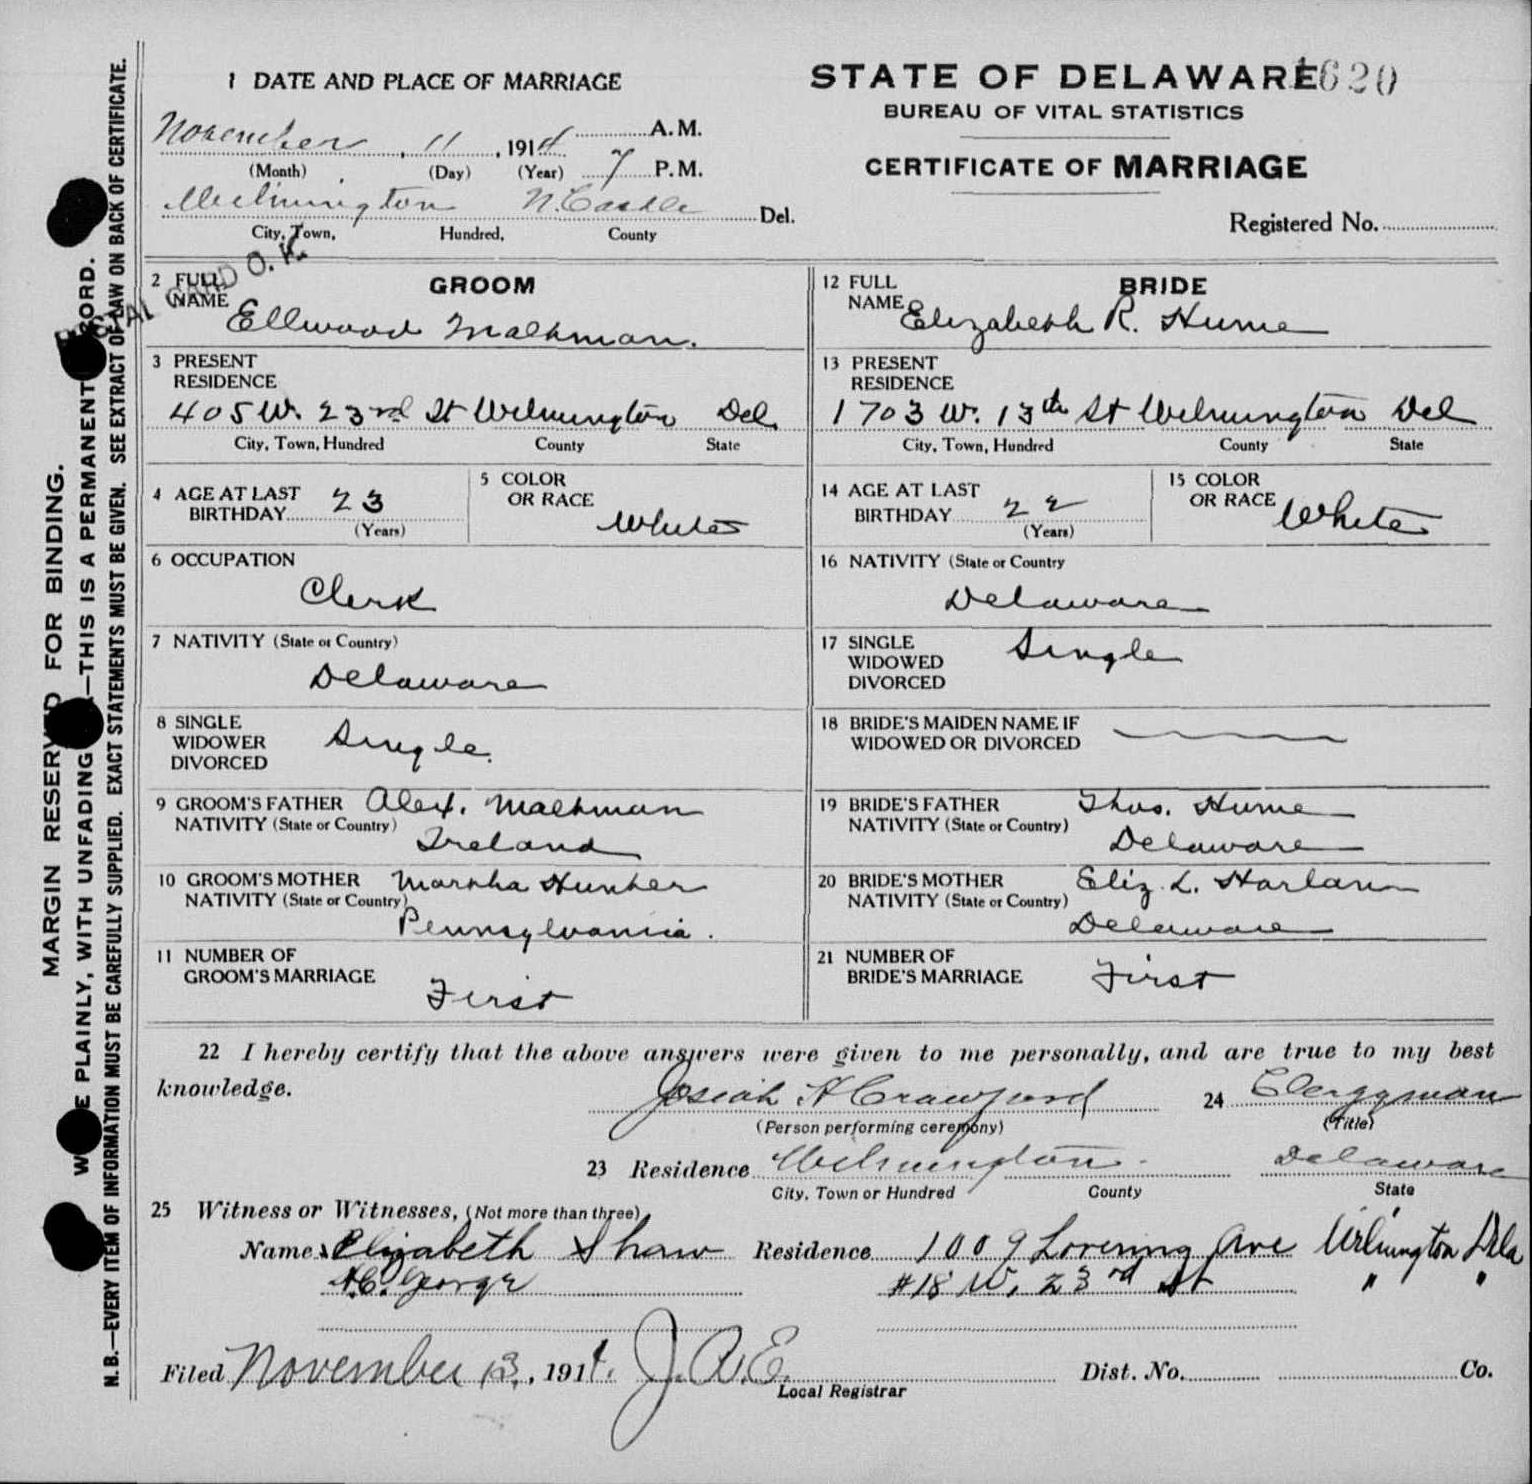 1 DATE AND PLACE OF MARRIAGE
November, 11, 1914 A.M.
(Month) (Day) (Year) 7 P.M.
Wilmington N. Castle Del.
City, Town, Hundred, County
STATE OF DELAWARE
1620
BUREAU OF VITAL STATISTICS
CERTIFICATE OF MARRIAGE
Registered No.
POSTAL CARD O. K.
GROOM
2 FULL NAME Ellwood Malkman.
3 PRESENT RESIDENCE
405 W. 23rd St Wilmington Del.
City, Town, Hundred County State
4 AGE AT LAST BIRTHDAY 23 (Years)
5 COLOR OR RACE White
6 OCCUPATION
Clerk
7 NATIVITY (State or Country)
Delaware
8 SINGLE WIDOWER DIVORCED Single.
9 GROOM'S FATHER Alex. Malkman
NATIVITY (State or Country) Ireland
10 GROOM'S MOTHER Martha Hunter
NATIVITY (State or Country) Pennsylvania.
11 NUMBER OF GROOM'S MARRIAGE First
BRIDE
12 FULL NAME Elizabeth R. Hume
13 PRESENT RESIDENCE
1703 W. 13th St Wilmington Del
City, Town, Hundred County State
14 AGE AT LAST BIRTHDAY 22 (Years)
15 COLOR OR RACE White
16 NATIVITY (State or Country
Delaware
17 SINGLE WIDOWED DIVORCED Single
18 BRIDE'S MAIDEN NAME IF WIDOWED OR DIVORCED
19 BRIDE'S FATHER Thos. Hume
NATIVITY (State or Country) Delaware
20 BRIDE'S MOTHER Eliz. L. Harlan
NATIVITY (State or Country) Delaware
21 NUMBER OF BRIDE'S MARRIAGE First
22 I hereby certify that the above answers were given to me personally, and are true to my best
knowledge.
Josiah H Crawford 24 Clergyman
(Person performing ceremony) (Title)
23 Residence Wilmington. Delaware
City, Town or Hundred County State
25 Witness or Witnesses, (Not more than three)
Names Elizabeth Shaw Residence 1009 Lovering Ave Wilmington Dela
H.C. George #18 W. 23rd St " "
Filed November 13, 1914. J.A.E. Dist. No. Co.
Local Registrar
MARGIN RESERVED FOR BINDING.
WRITE PLAINLY, WITH UNFADING —THIS IS A PERMANENT RECORD.
N. B.—EVERY ITEM OF INFORMATION MUST BE CAREFULLY SUPPLIED. EXACT STATEMENTS MUST BE GIVEN. SEE EXTRACT OF LAW ON BACK OF CERTIFICATE.